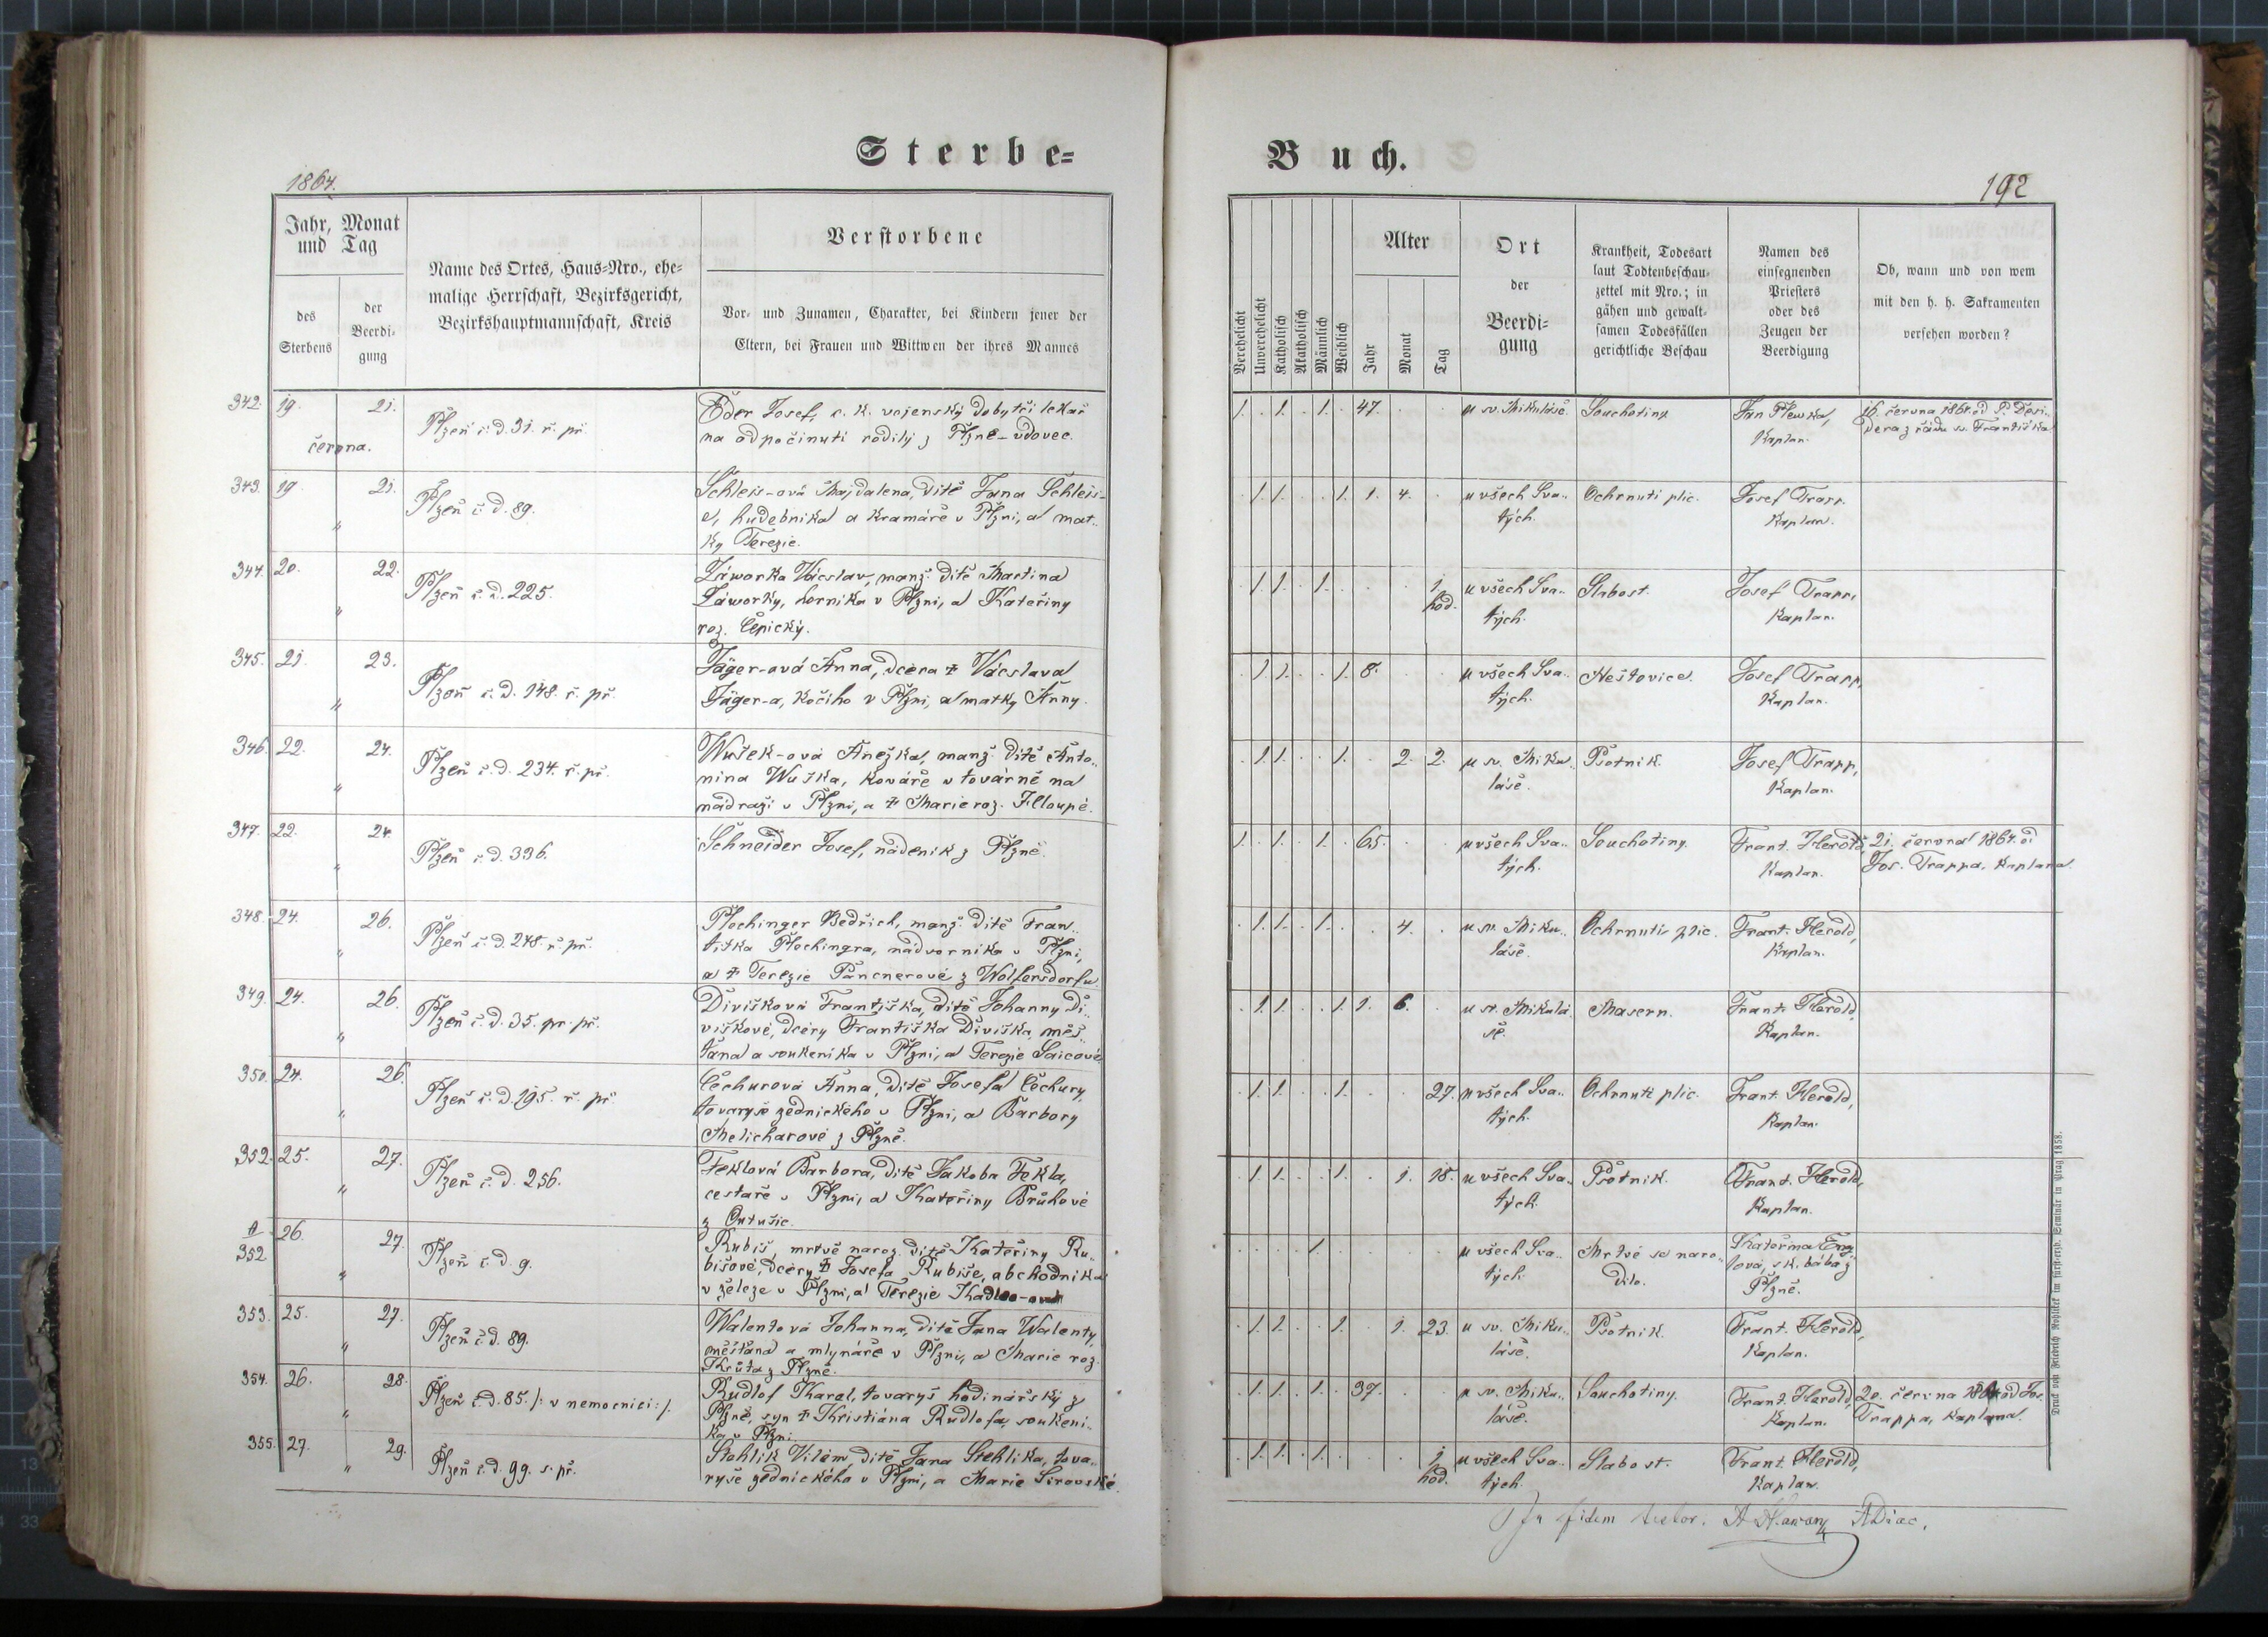 Sterbe-
Buch.
1864.
192
Jahr, Monat
und Tag
des
Sterbens
der
Beerdi-
gung
Name des Ortes, Haus-Nro., ehe-
malige Herrschaft, Bezirksgericht,
Bezirkshauptmannschaft, Kreis
Verstorbene
Vor- und Zunamen, Charakter, bei Kindern jener der
Eltern, bei Frauen und Wittwen der ihres Mannes
Verehelicht
Unverehelicht
Katholisch
Akatholisch
Männlich
Weiblich
Alter
Jahr
Monat
Tag
Ort
der
Beerdi-
gung
Krankheit, Todesart
laut Todtenbeschau-
zettel mit Nro.; in
gähen und gewalt-
samen Todesfällen
gerichtliche Beschau
Namen des
einsegnenden
Priesters
oder des
Zeugen der
Beerdigung
Ob, wann und von wem
mit den h. h. Sakramenten
versehen worden?
342. 19. 21.
června.
Plzeň č. d. 31. ř. př.
Eder Josef, c. k. vojenský dobytčí lékař
na odpočinutí rodilý z Plzně - vdovec.
1. . 1. . 1. . 47. . .
u sv. Mikuláše.
Souchotiny.
Jan Plewka,
Kaplan.
16. června 1864. od P. Desi-
dera z řádu sv. Františka
343. 19. 21.
"
Plzeň č. d. 89.
Schleis-ová Majdalena, dítě Jana Schleis-
a, hudebníka a kramáře v Plzni, a mat-
ky Terezie.
. 1. 1. . . 1. 1. 4. .
u všech Sva-
tých.
Ochrnutí plic.
Josef Trapp.
Kaplan.
344. 20. 22.
"
Plzeň č. d. 225.
Záworka Václav, manž. dítě Martina
Záworky, horníka v Plzni, a Kateřiny
roz. Čepický.
. 1. 1. . 1. . . . 1
hod.
u všech Sva-
tých.
Slabost.
Josef Trapp,
Kaplan.
345. 21. 23.
"
Plzeň č. d. 148. ř. př.
Jäger-ová Anna, dcera ‡ Václava
Jäger-a, kočího v Plzni, a matky Anny.
. 1. 1. . . 1. 8. . .
u všech Sva-
tých.
Neštovice.
Josef Trapp,
Kaplan.
346. 22. 24.
"
Plzeň č. d. 234. ř. př.
Wušek-ová Anežka, manž. dítě Anto-
nína Wuška, kováře v továrně na
nádraží v Plzni, a ‡ Marie roz.
. 1. 1. . . 1. . 2. 2.
u sv. Miku-
láše.
Psotník.
Josef Trapp,
Kaplan.
347. 22. 24.
"
Plzeň č. d. 336.
Schneider Josef, nádeník z Plzně.
1. . 1. . 1. . 65. . .
u všech Sva-
tých.
Souchotiny.
Frant. Herold,
Kaplan.
21. června 1864. od
Jos. Trappa, Kaplana
348. 24. 26.
"
Plzeň č. d. 248. ř. př.
Plochinger Bedřich, manž. dítě Fran-
tiška Plochingra, nádvorníka v Plzni,
a ‡ Terezie Pancnerové z Wolfersdorfu
. 1. 1. . 1. . . 4. .
u sv. Miku-
láše.
Ochrnutí plic.
Frant. Herold,
Kaplan.
349. 24. 26.
"
Plzeň č. d. 35. pr. př.
Divišková Františka, dítě Johanny Di-
viškové, dcery Františka Diviška, měš-
ťana a soukeníka v Plzni, a Terezie Saicové
. 1. 1. . . 1. 1. 6. .
u sv. Mikulá-
še.
Masern.
Frant. Herold,
Kaplan.
350. 24. 26.
"
Plzeň č. d. 195. ř. př.
Čechurová Anna, dítě Josefa Čechury,
tovaryše zednického v Plzni, a Barbory
Melicharové z Plzně.
. 1. 1. . . 1. . . 27.
u všech Sva-
tých.
Ochrnutí plic.
Frant. Herold,
Kaplan.
352. 25. 27.
"
Plzeň č. d. 256.
Feklová Barbora, dítě Jakoba Fekla,
cestáře v Plzni, a Kateřiny Brůhové
z
. 1. 1. . . 1. . 1. 18.
u všech Sva-
tých.
Psotník.
Frant. Herold,
Kaplan.
A
352 26. 27.
"
Plzeň č. d. 9.
Rubiš, mrtvě naroz. dítě Kateřiny Ru-
bišové, dcery ‡ Josefa Rubiše, obchodníka
v železe v Plzni, a Terezie
. . . . 1. . . . .
u všech Sva-
tých.
Mrtvě se naro-
dilo.
Kateřina
z
Plzně.
353. 25. 27.
"
Plzeň č. d. 89.
Walentová Johanna, dítě Jana Walenty,
měšťana a mlynáře v Plzni, a Marie roz.
Krůta z Plzně.
. 1. 1. . . 1. . 1. 23.
u sv. Miku-
láše.
Psotník.
Frant. Herold,
Kaplan.
354. 26. 28.
"
Plzeň č. d. 85. /: v nemocnici :/.
Rudlof Karel, tovaryš hodinářský z
Plzně, syn ‡ Kristiána Rudlofa, soukení-
ka v Plzni.
. 1. 1. . 1. . 37. . .
u sv. Miku-
láše.
Souchotiny.
Frant. Herold,
Kaplan.
20. června 1864 od Jos.
Trappa, Kaplana.
355. 27. 29.
"
Plzeň č. d. 99. s. př.
Stehlík Vilém, dítě Jana Stehlíka, tova-
ryše zednického v Plzni, a Marie Sirovské
. 1. 1. . 1. . . . 1
hod.
u všech Sva-
tých.
Slabost.
Frant. Herold,
Kaplan.
In fidem ADiac.
Druck von Friedrich Rohliček im fürsterzb. Seminär in Prag 1858.